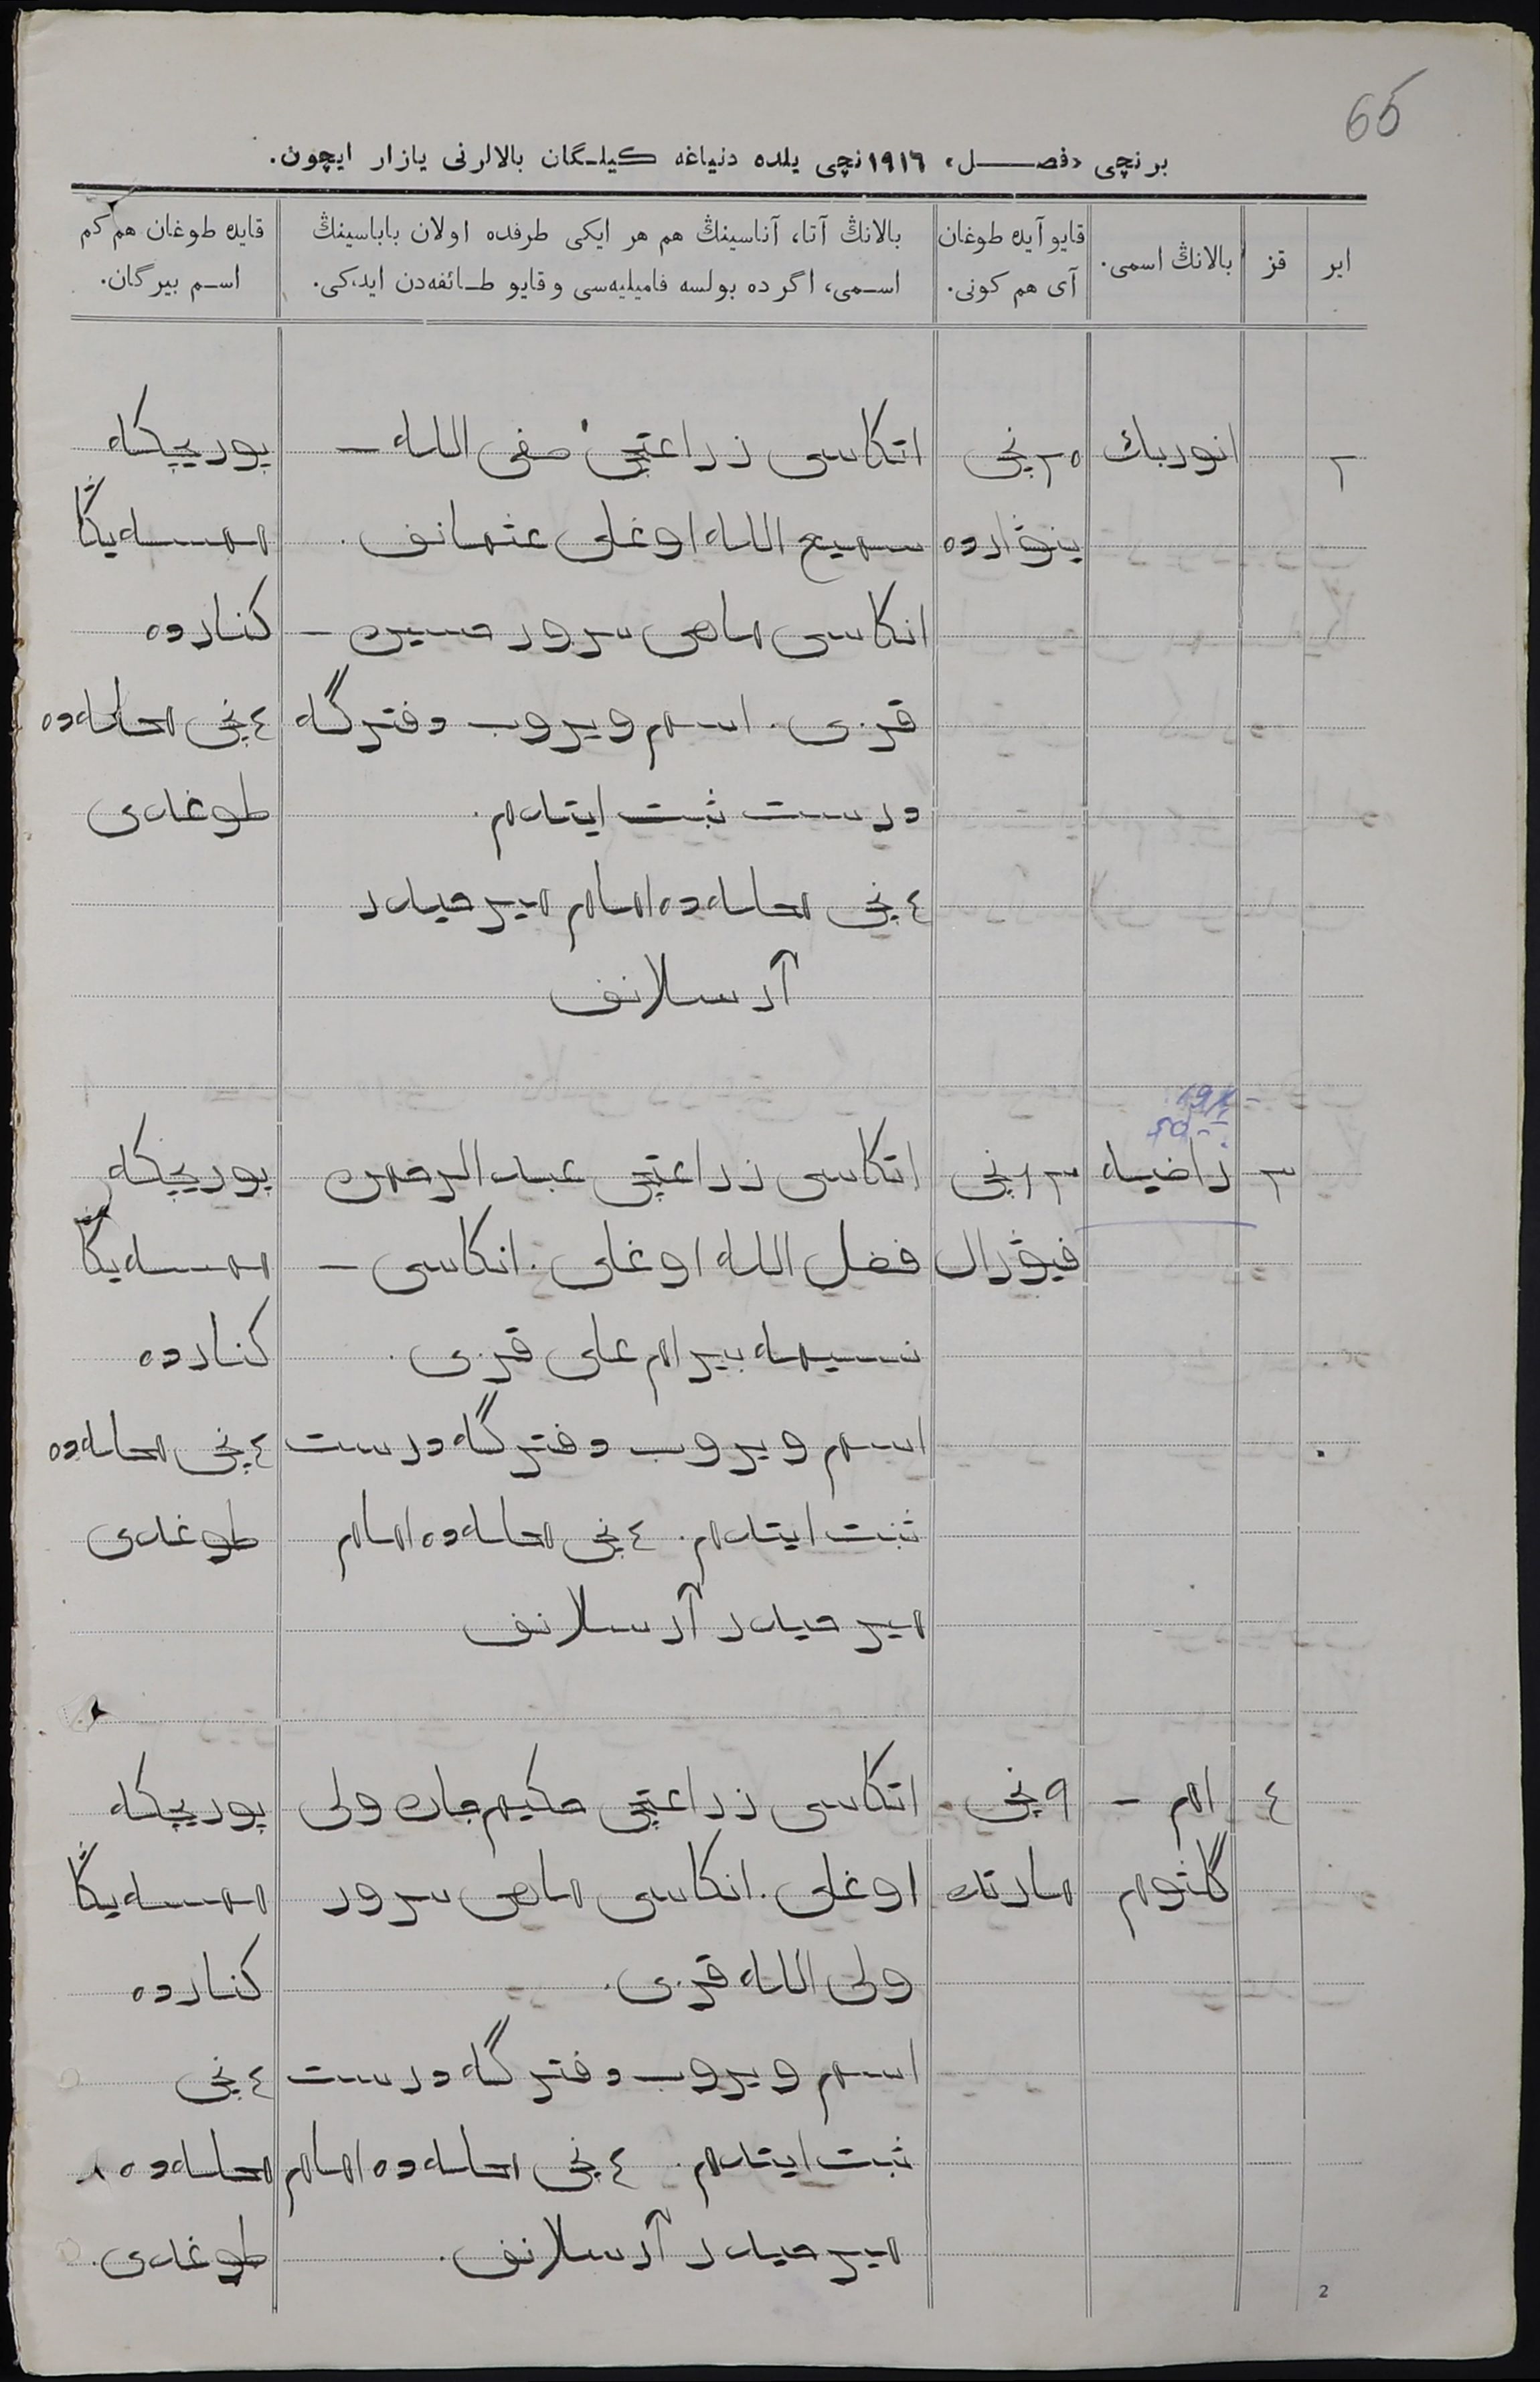 65
برنچی «فصل» ١٩١٦نچی یلده دنیاغه كیلـگان بالالرنی یازار ایچون.
ایر
قز
بالانڭ اسمی.
قایو آیده طوغان
آی هم كونی.
بالانڭ آتا، آناسینڭ هم هر ایكی طرفده اولان باباسینڭ
اسـمی، اگر ده بولسه فامیلیه‌سی و قایو طـائفه‌دن ایدكی.
قایده طوغان هم كم
اسـم بیرگان.
٢
انوربك
٢٥نچی
ینۋارده
اتكاسی زراعتچی صفی الله –
سمیع الله اوغلی عثمانف.
انكاسی ماهی سرور حسین –
قزی. اسم ویروب دفترگه
درست ثبت ایتدم.
٤نچی محله‌ده امام میرحیدر
آرسلانف
كنارده
٤نچی محله‌ده
طوغدی
٣
راضیه
٢٣نچی
فیۋرال
اتكاسی زراعتچی عبدالرحمن
فضل الله اوغلی. انكاسی –
نسیمه بیرام علی قزی.
اسم ویروب دفترگه درست
ثبت ایتدم. ٤نچی محله‌ده امام
میرحیدر آرسلانف
كنارده
٤نچی محله‌ده
طوغدی
٤
ام –
گلثوم
٩نچی
مارتده
اتكاسی زراعتچی حكیم جان ولی
اوغلی. انكاسی ماهی سرور
ولی الله قزی.
اسم ویروب دفترگه درست
ثبت ایتدم. ٤نچی محله‌ده امام
میرحیدر آرسلانف.
كنارده
٤نچی
محله‌ده
طوغدی.
2